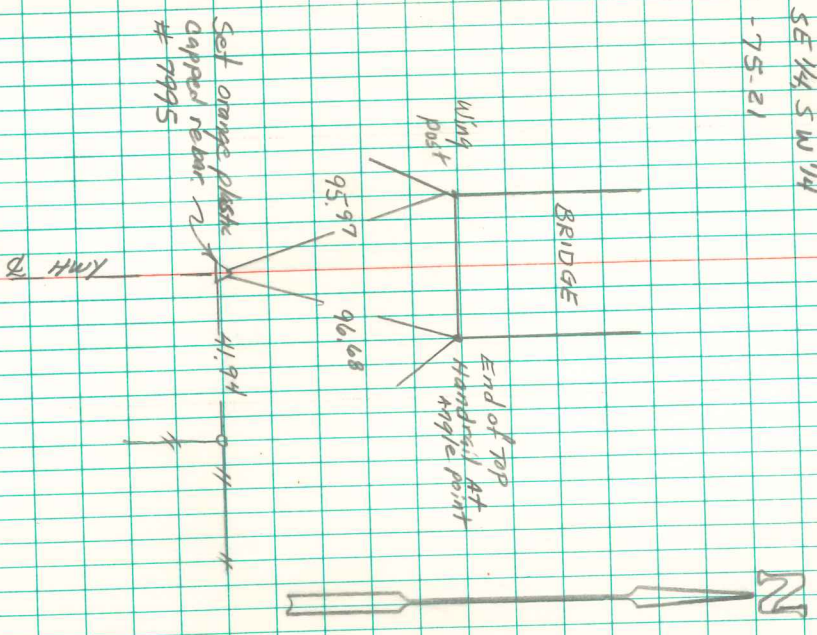 SE 1/4, SW 1/4
-75-21
Wing
post
BRIDGE
End of Top
Handrail At
Angle point
95.97
96.68
Set orange plastic
capped rebar
# 7995
41.94
Hwy
N